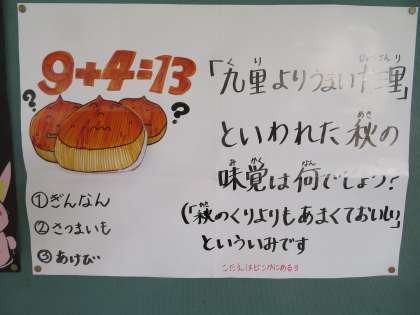 9+4=13
?
?
くり じゅうさんり
「九里よりうまい十三里」
あき
といわれた秋の
みかく なん
味覚は何でしょう?
あき
(「秋のくりよりもあまくておいしい」
といういみです
①ぎんなん
②さつまいも
③あけび
こたえは にあるヨ